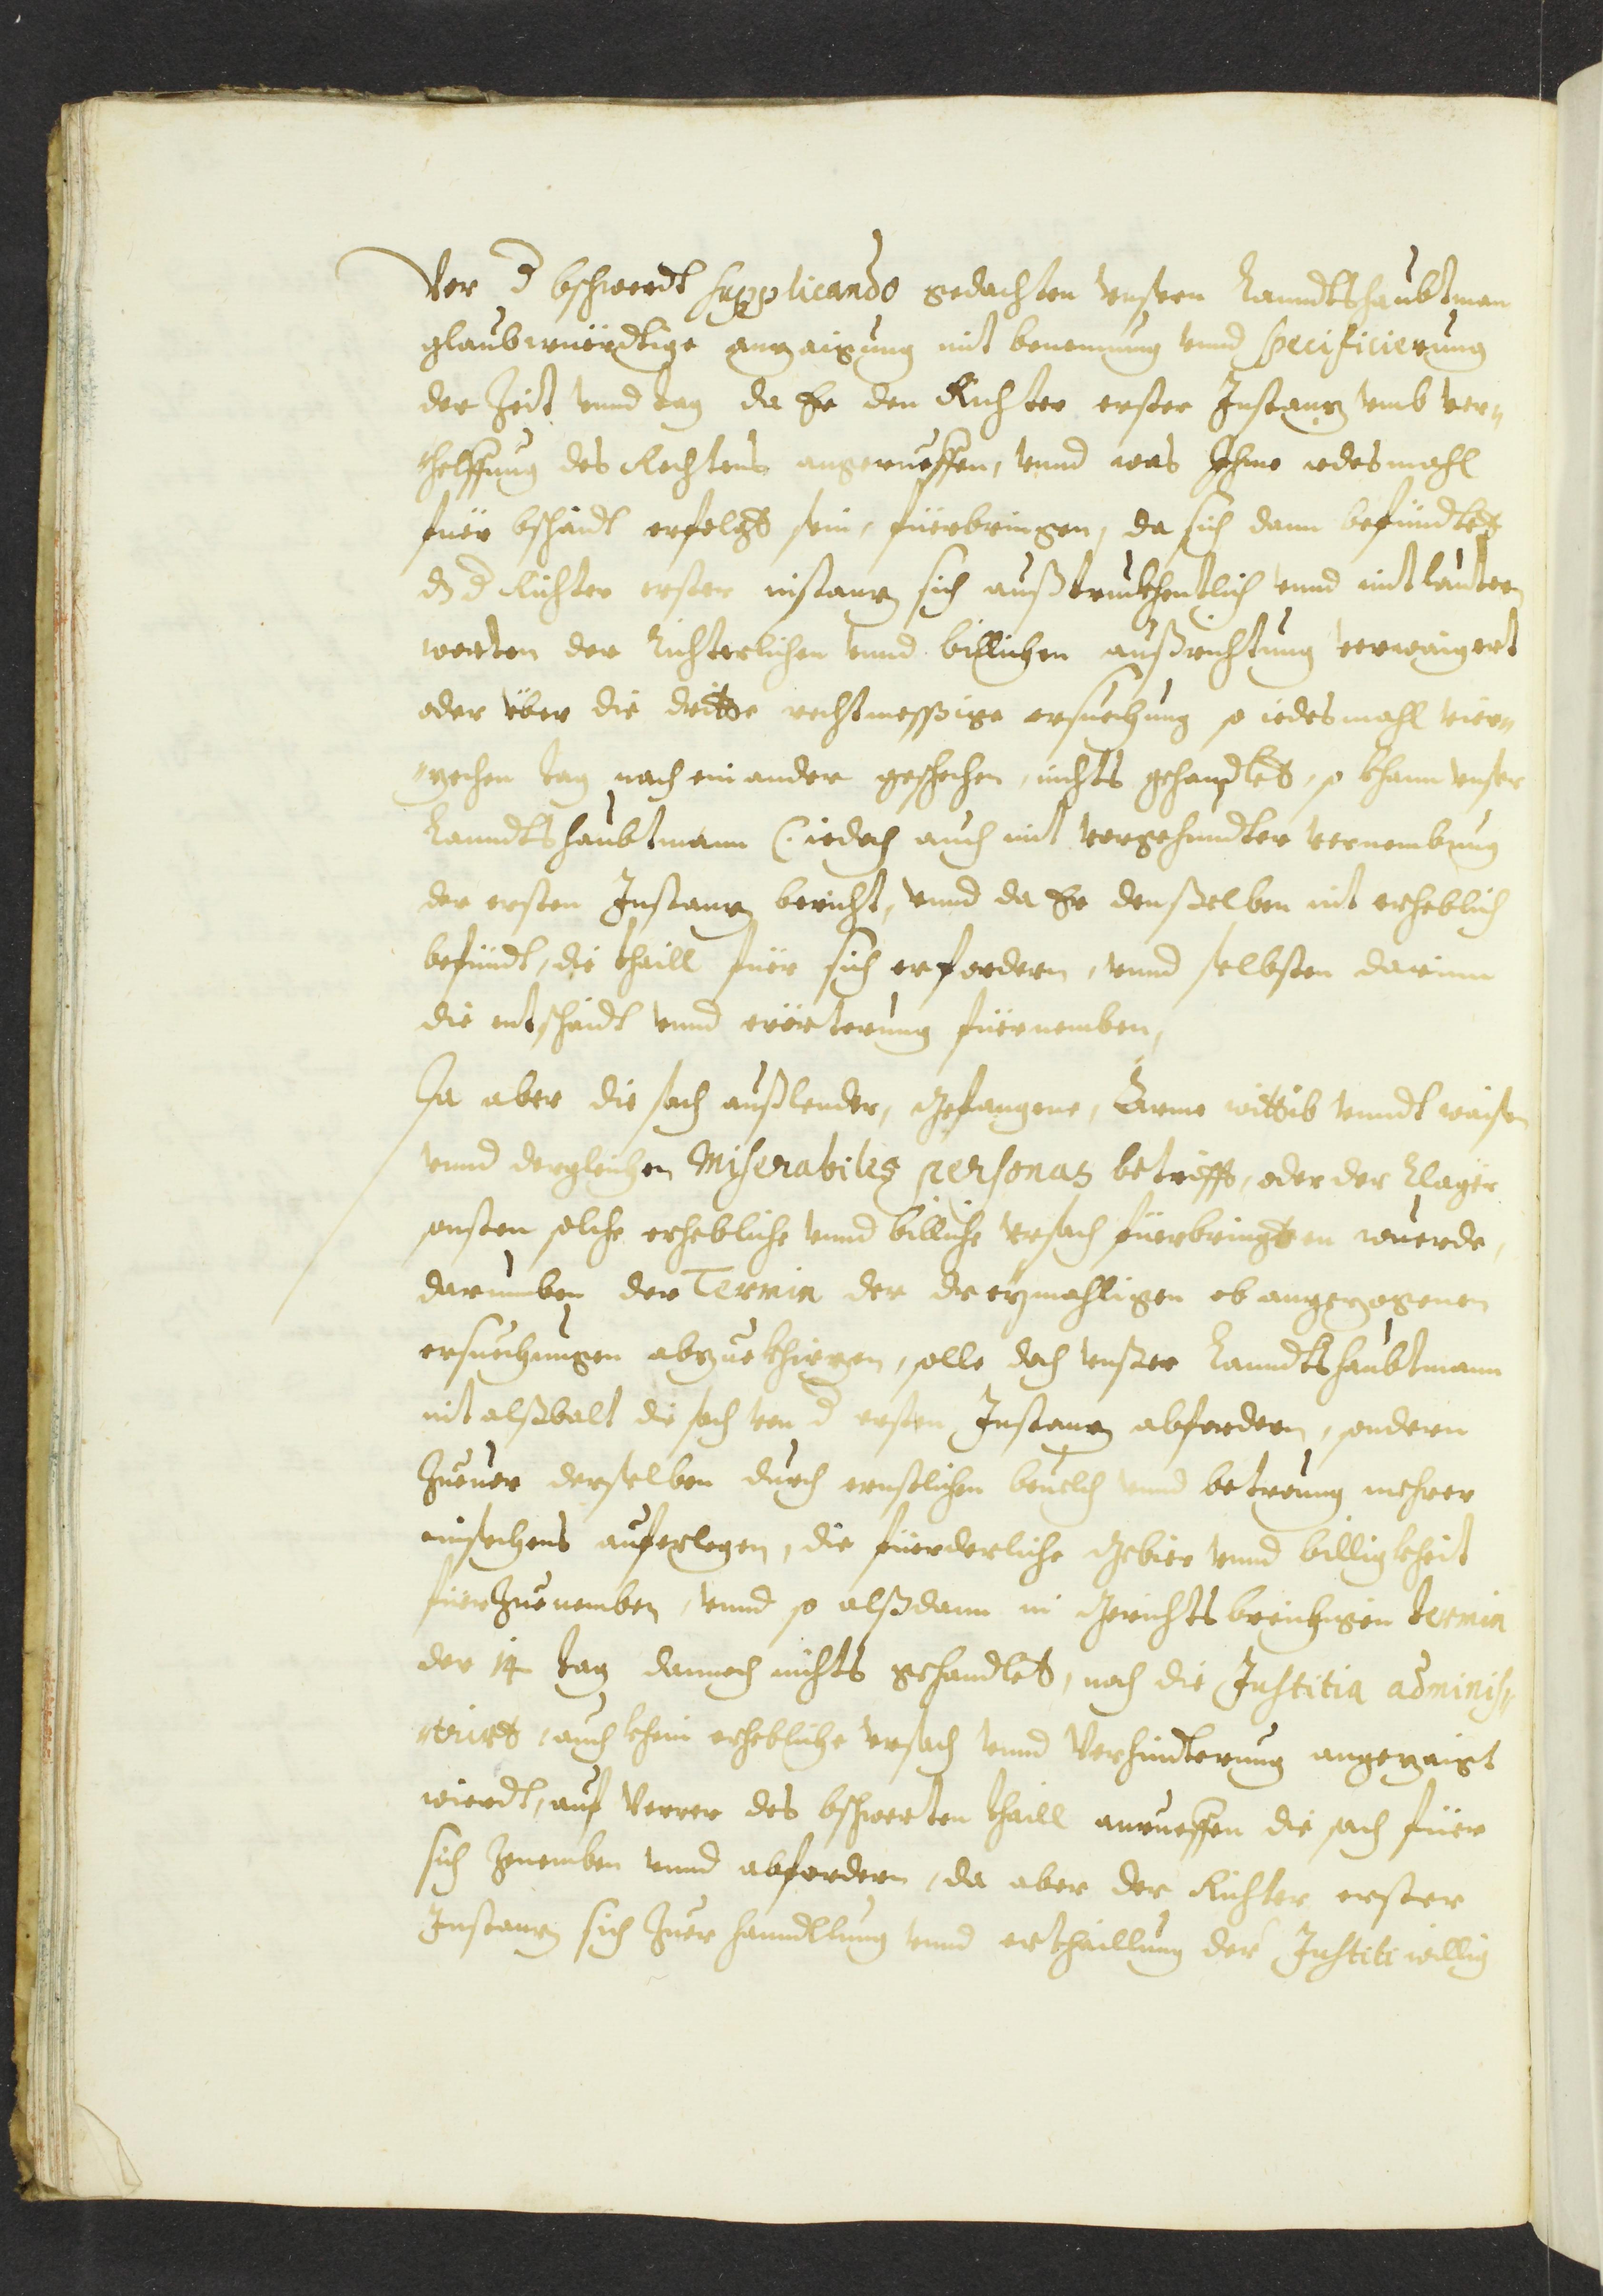 der d bschwerdt supplicando gedachten unsern Lanndtshaubtman
glaubwüerdtige anzaigung mit benennung unnd specificierung
der Zeit unnd tag da Er den Richter erster Instanz umb ver„
helffung des Rechtens angerueffen, unnd was Ihme iedesmahl
fuer bschaidt erfolgt sein, füerbringen, da sich dann befündtet
dz d Richter erster instanz sich außtrukhentlich unnd mit lautern
worten der Richterlichen unnd billichen außrichtung verwaigert
oder über die dritte rechtmessige ersuechung so iedesmahl vier„
„zechen tag nach einander geschechen, nichts gehandlet, so khann unser
Lanndtshaubtmann (: iedoch auch mit vorgehundter vernembung
der ersten Instanz bericht, unnd da Er denselben nit erheblich
befündt, die thaill fuer sich erfordern, unnd selbsten darinn
die entschaidt unnd erörterung füernemben,
Da aber die sach außlender, gefangene, Arme wittib unndt waisen
unnd dergleichen Miserabiles personas betrifft, oder der Clager
sonsten solche erhebliche unnd billiche ursach füerbringen wuerde,
darumben der Termin der dreymahligen ob angezogenen
ersuechungen abzuekhirzen, solle doch unßer Lanndtshaubtmann
nit alßbalt die sach von d ersten Instanz abfordern, sondern
Zuvor derselben durch ernstlichen bevelch unnd betroung mehrer
einsechens auferlegen, die füerderliche Gebier unnd billigkheit
füerZuenemben, unnd so alßdann in Gerichts breichigen termin
der 14 tag dannoch nichts gehandlet, noch die Justitia adminis„
„triert, auch khein erhebliche ursach unnd Verhindterung angezaigt
wierdt, auf Verrer des bschwerten thaill anrueffen die sach füer
sich Zenemben unnd abfordern, da aber der Richter erster
Instanz sich Zuer hanndllung unnd erthaillung der Justiti willig